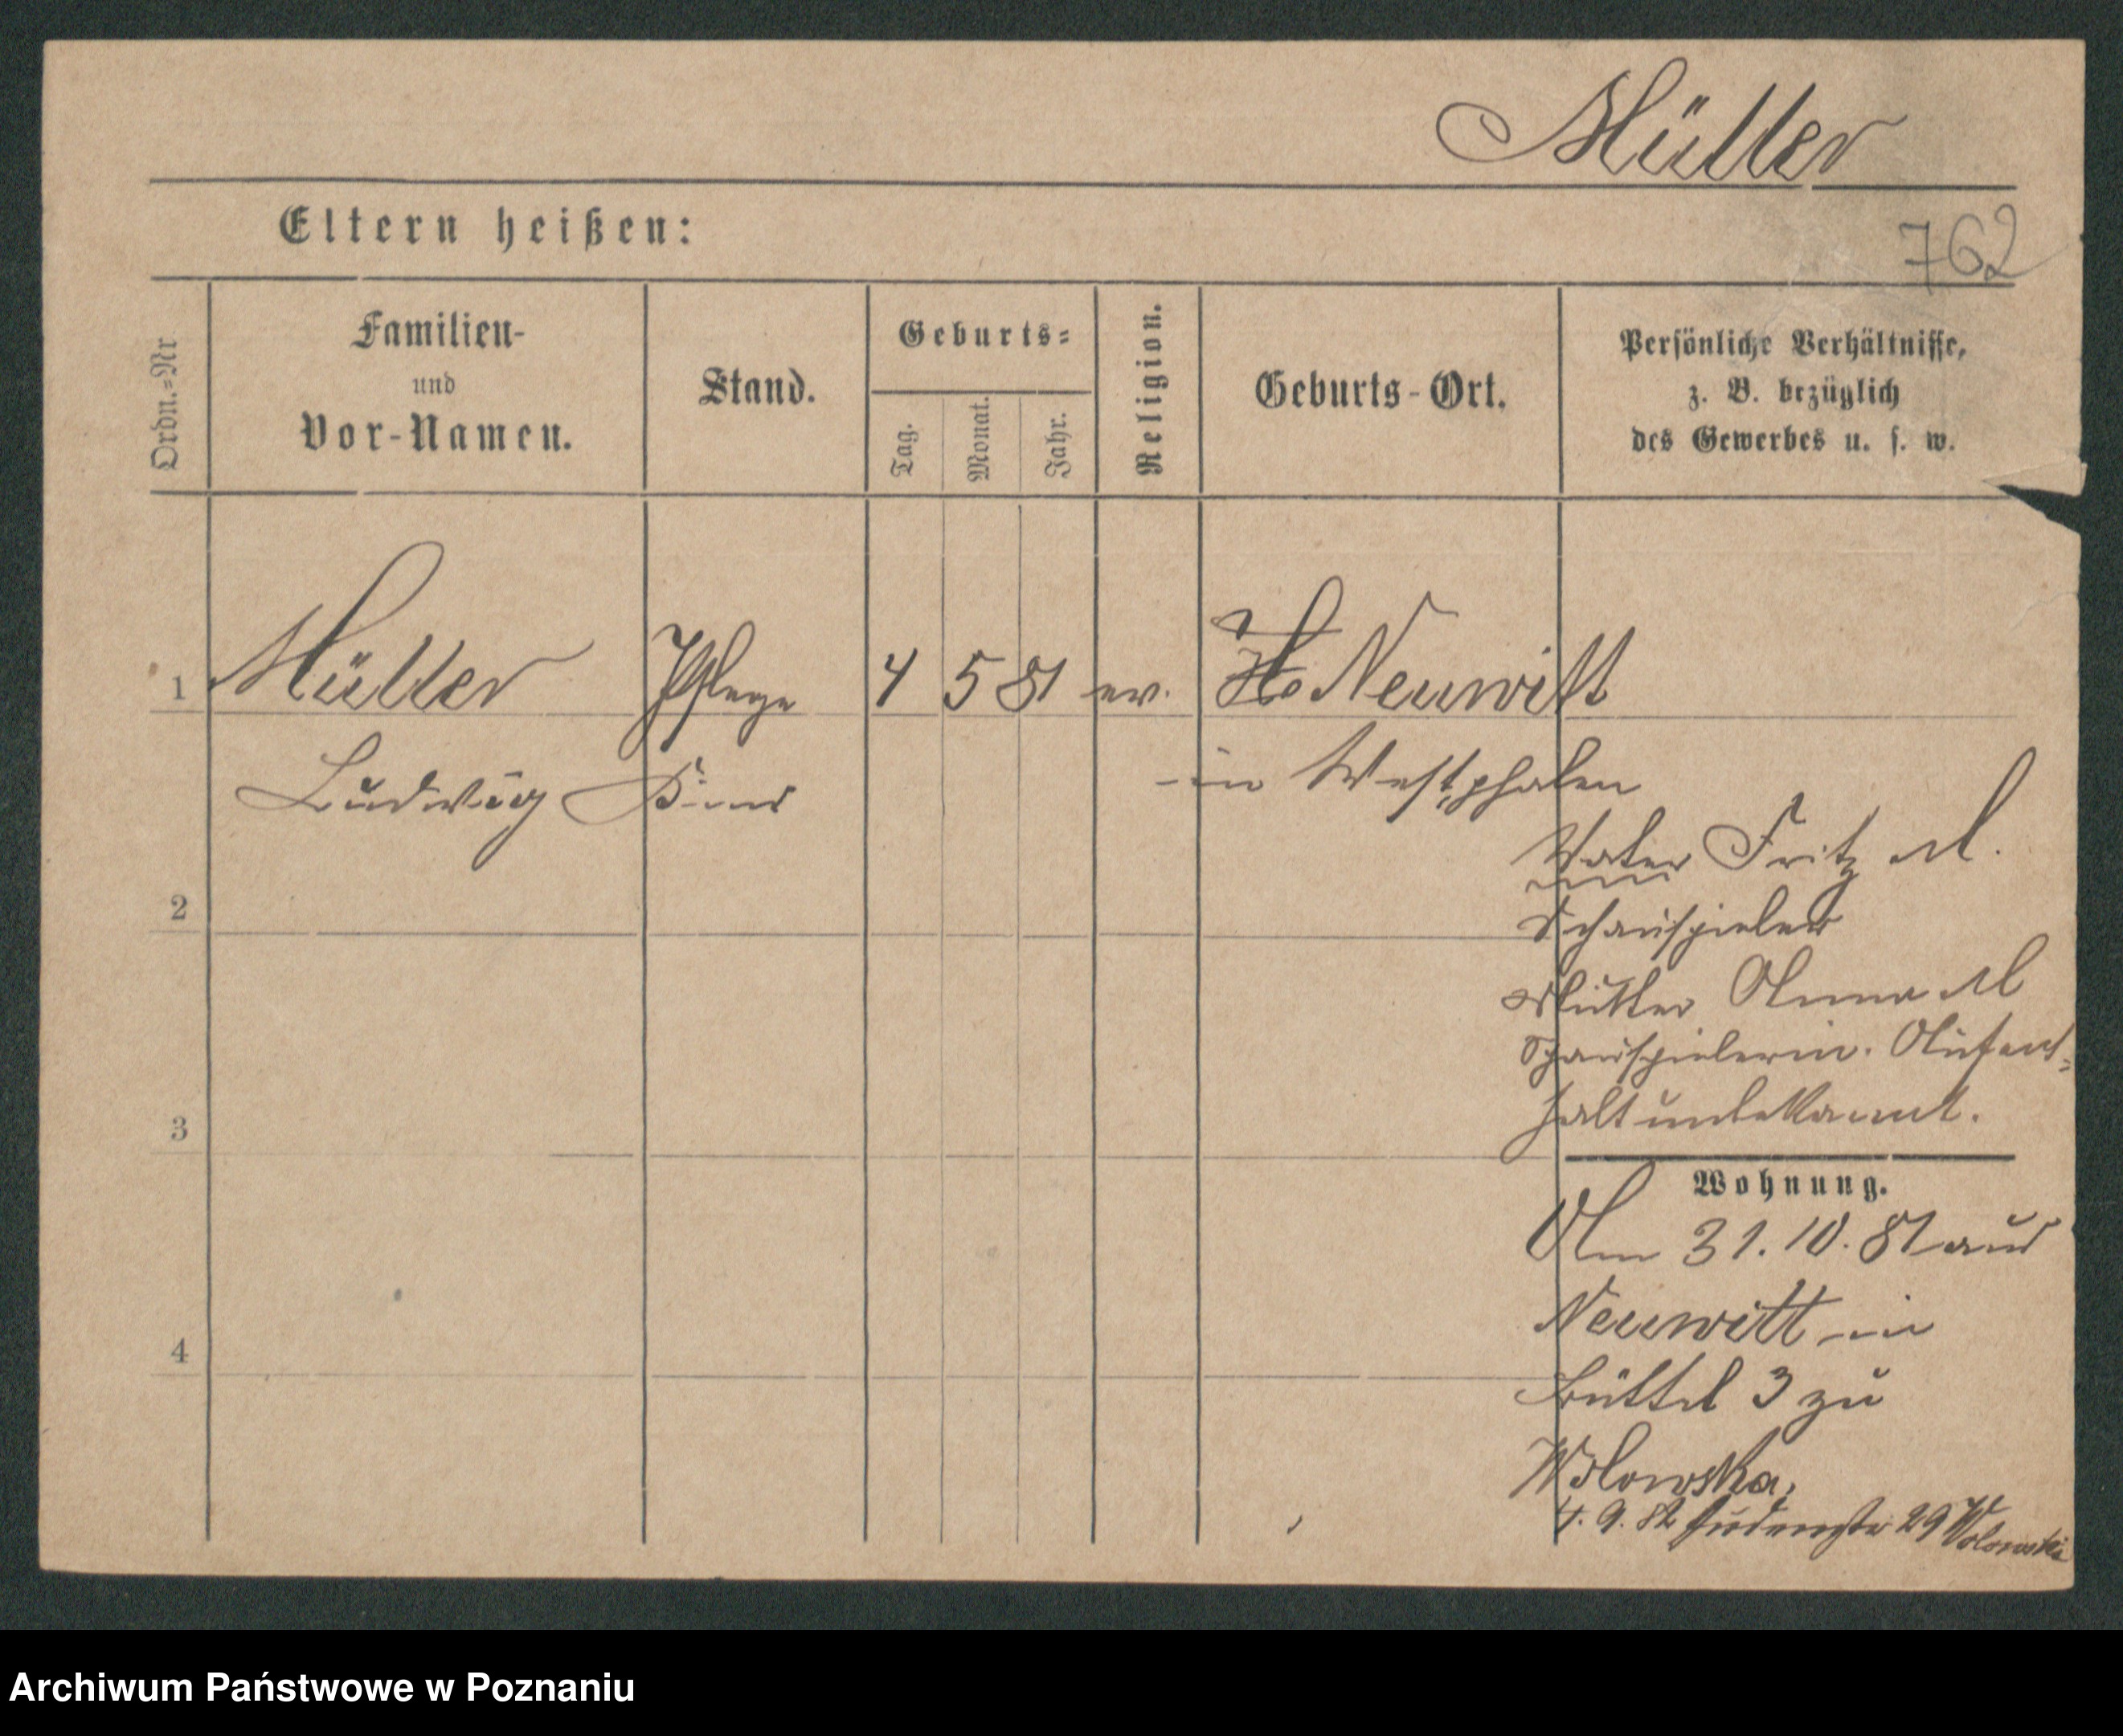 Müller
Eltern heißen:
762
Ordn.=Nr
Familien-
und
Vor-Namen.
Stand.
Geburts=
Tag.
Monat.
Jahr.
Religion.
Geburts-Ort.
Persönliche Verhältnisse,
z. B. bezüglich
des Gewerbes u. s. w.
1 Müller Pflege 4 5 81 ev. Neuwitt
Ludwig Kind in Westphalen
Vater Fritz M.
2
Schauspieler
Mutter Anna M
Schauspielerin. Aufent=
halt unbekannt.
3
Wohnung.
Am 31.10.81 aus
Neuwitt in
4
Büttel 3 zu
Wolowska,
4.9.82 Judenstr 29 Wolowska
Archiwum Państwowe w Poznaniu